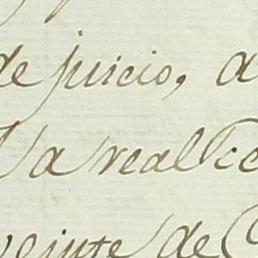 de juicio, a
la real ce
veinte de